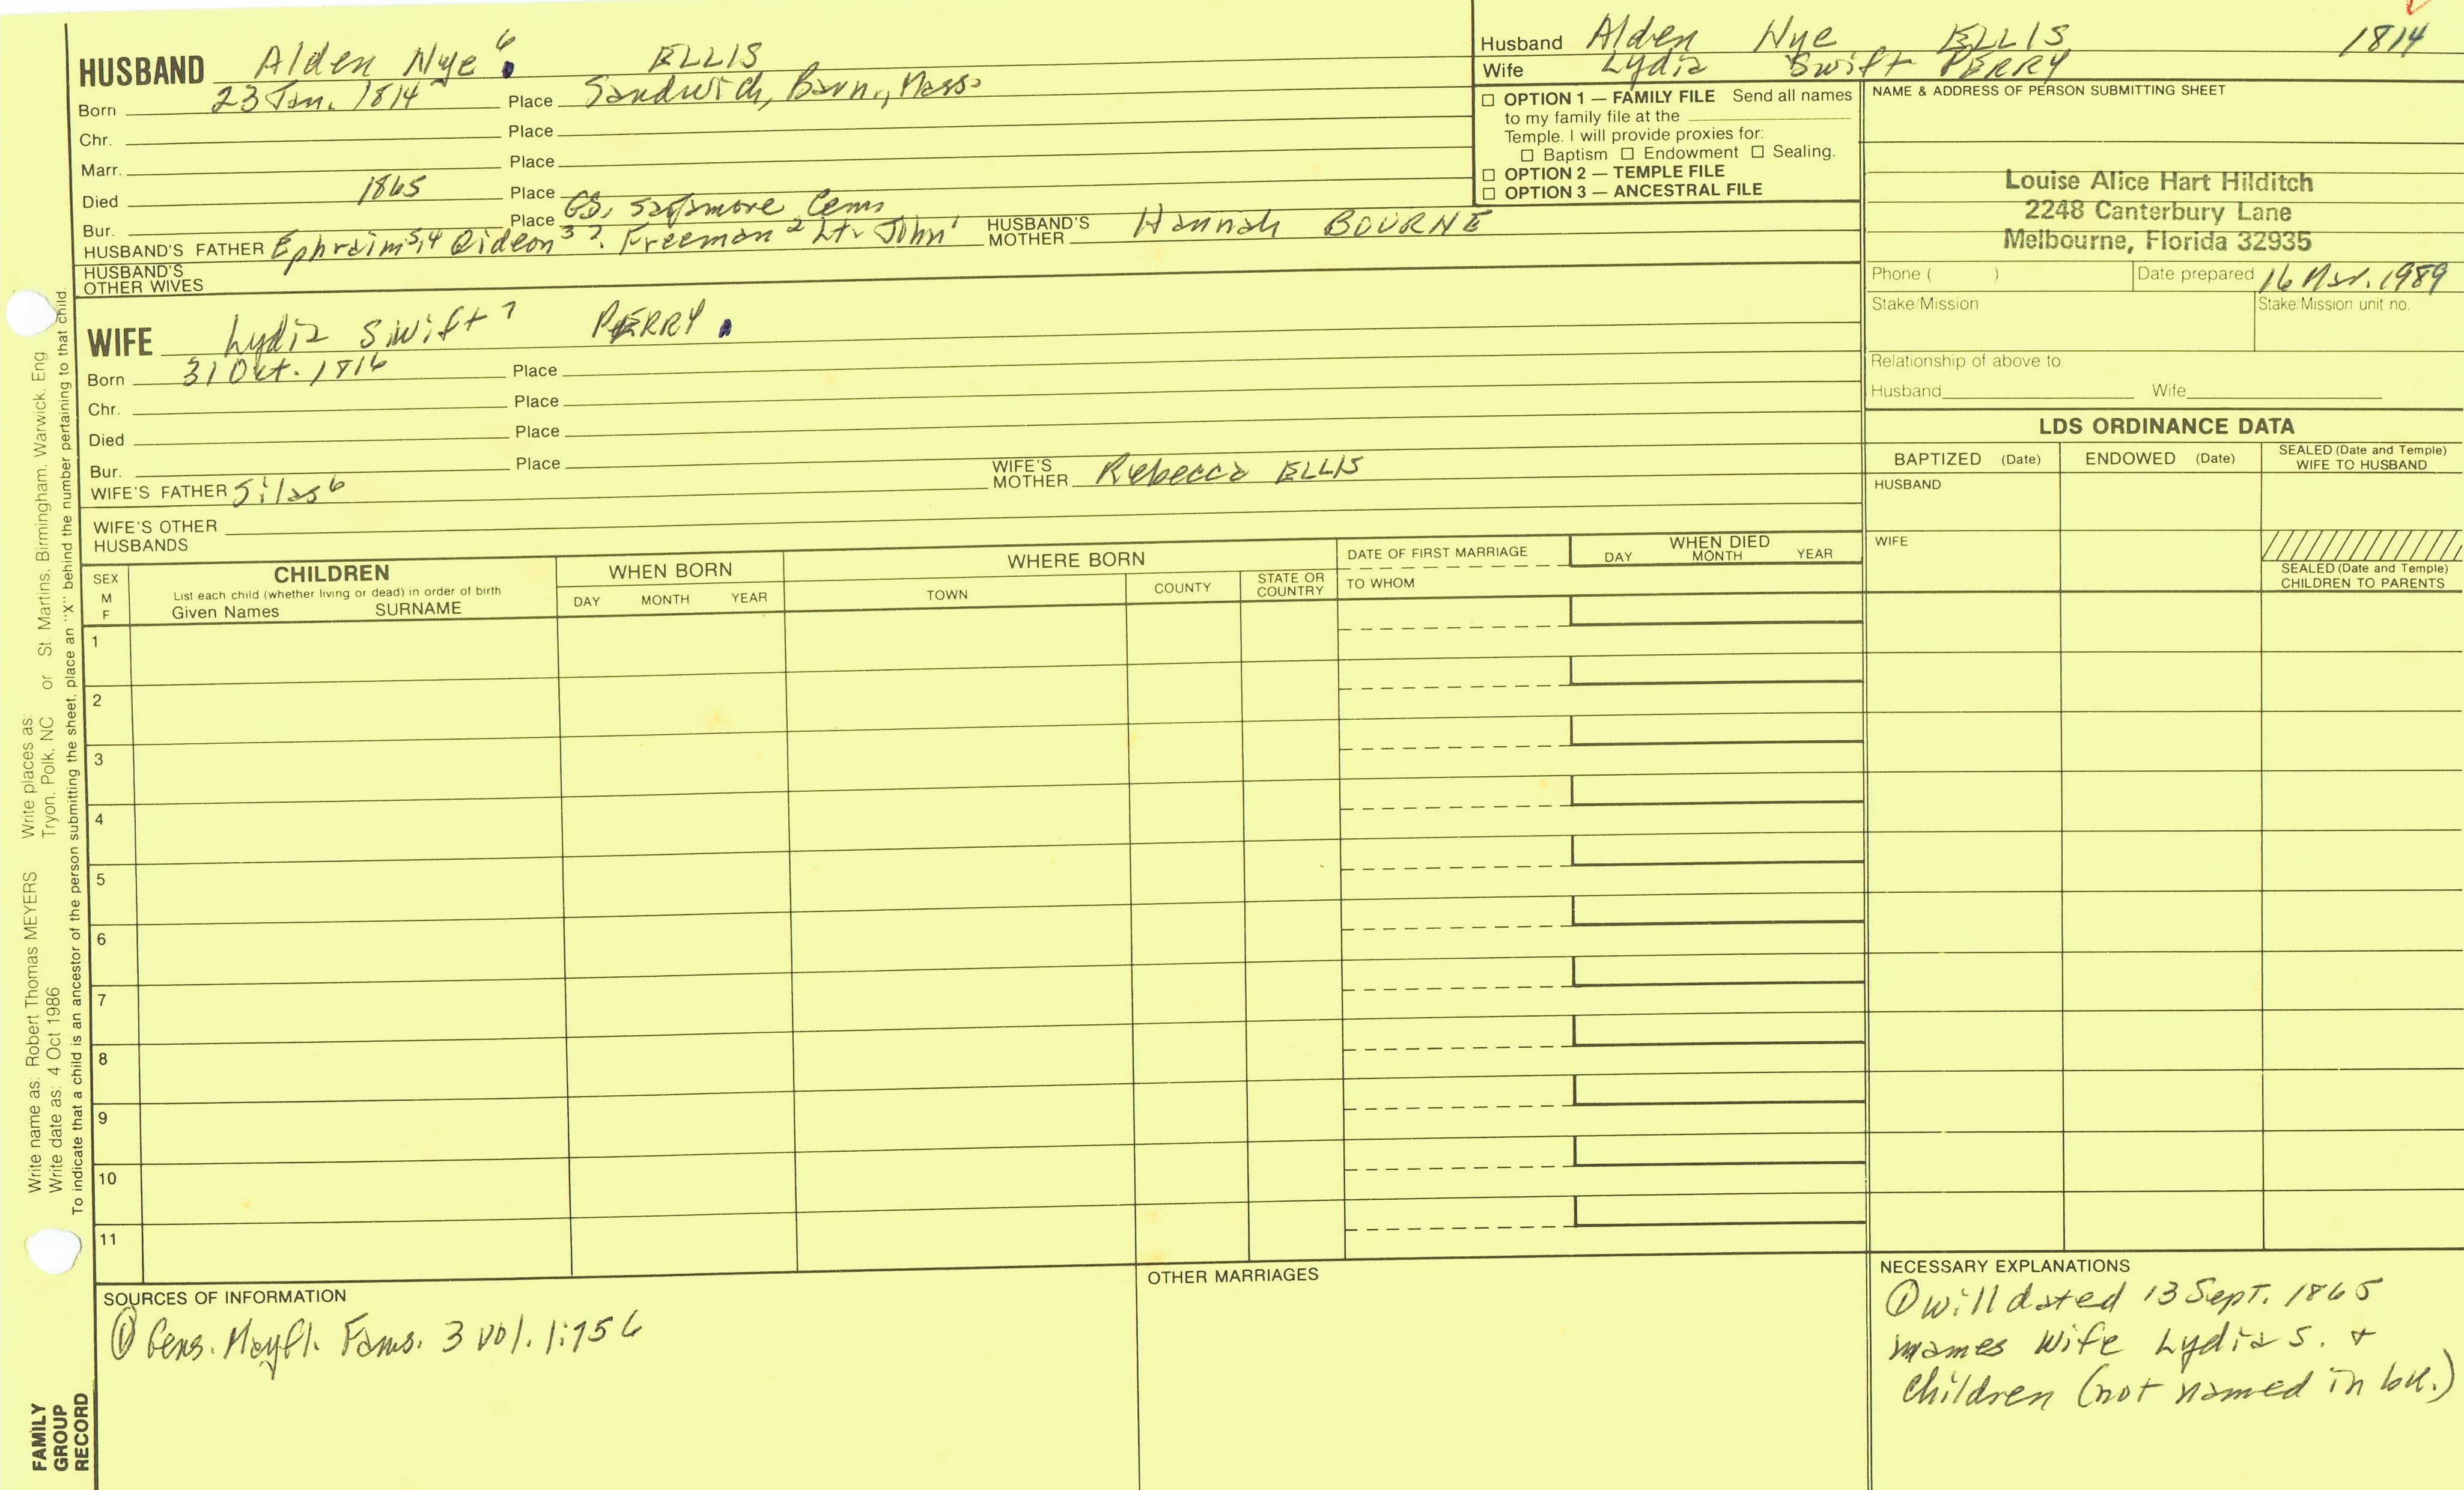 HUSBAND Alden Nye 6 ELLIS
Born 23 Jan. 1814 Place Sandwich, Barn., Mass.
Chr. Place
Marr. Place
Died 1865 Place
Bur. Place GS, Sagamore Cem.
HUSBAND'S FATHER Ephraim 5,4 Gideon 3 ?. Freeman 2 Lt. John 1 HUSBAND'S MOTHER Hannah BOURNE
HUSBAND'S OTHER WIVES
WIFE Lydia Swift 7 PERRY.
Born 31 Oct. 1816 Place
Chr. Place
Died Place
Bur. Place
WIFE'S FATHER Silas 6 WIFE'S MOTHER Rebecca ELLIS
WIFE'S OTHER HUSBANDS
Husband Alden Nye ELLIS 1814
Wife Lydia Swift PERRY
☐ OPTION 1 — FAMILY FILE Send all names
to my family file at the
Temple. I will provide proxies for:
☐ Baptism ☐ Endowment ☐ Sealing.
☐ OPTION 2 — TEMPLE FILE
☐ OPTION 3 — ANCESTRAL FILE
NAME & ADDRESS OF PERSON SUBMITTING SHEET
Louise Alice Hart Hilditch
2248 Canterbury Lane
Melbourne, Florida 32935
Phone ( ) Date prepared 16 1989
Stake/Mission Stake/Mission unit no.
Relationship of above to
Husband Wife
LDS ORDINANCE DATA
BAPTIZED (Date) ENDOWED (Date) SEALED (Date and Temple)
WIFE TO HUSBAND
HUSBAND
WIFE
SEALED (Date and Temple)
CHILDREN TO PARENTS
SEX
M
F
CHILDREN
List each child (whether living or dead) in order of birth
Given Names SURNAME
WHEN BORN
DAY MONTH YEAR
WHERE BORN
TOWN COUNTY STATE OR COUNTRY
DATE OF FIRST MARRIAGE
TO WHOM
WHEN DIED
DAY MONTH YEAR
1
2
3
4
5
6
7
8
9
10
11
SOURCES OF INFORMATION
① Gens. Mayfl. Fams. 3 vol. 1:756
OTHER MARRIAGES
NECESSARY EXPLANATIONS
① will dated 13 Sept. 1865
names wife Lydia S. +
children (not named in bk.)
Write name as: Robert Thomas MEYERS Write places as: or St. Martins, Birmingham, Warwick, Eng
Write date as: 4 Oct 1986 Tryon, Polk, NC
To indicate that a child is an ancestor of the person submitting the sheet, place an "X" behind the number pertaining to that child.
FAMILY
GROUP
RECORD